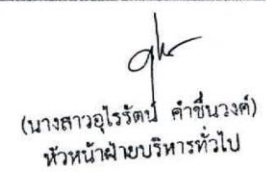 (นางสาวอุไรรัตน์ คำชื่นวงศ์)
หัวหน้าฝ่ายบริหารทั่วไป